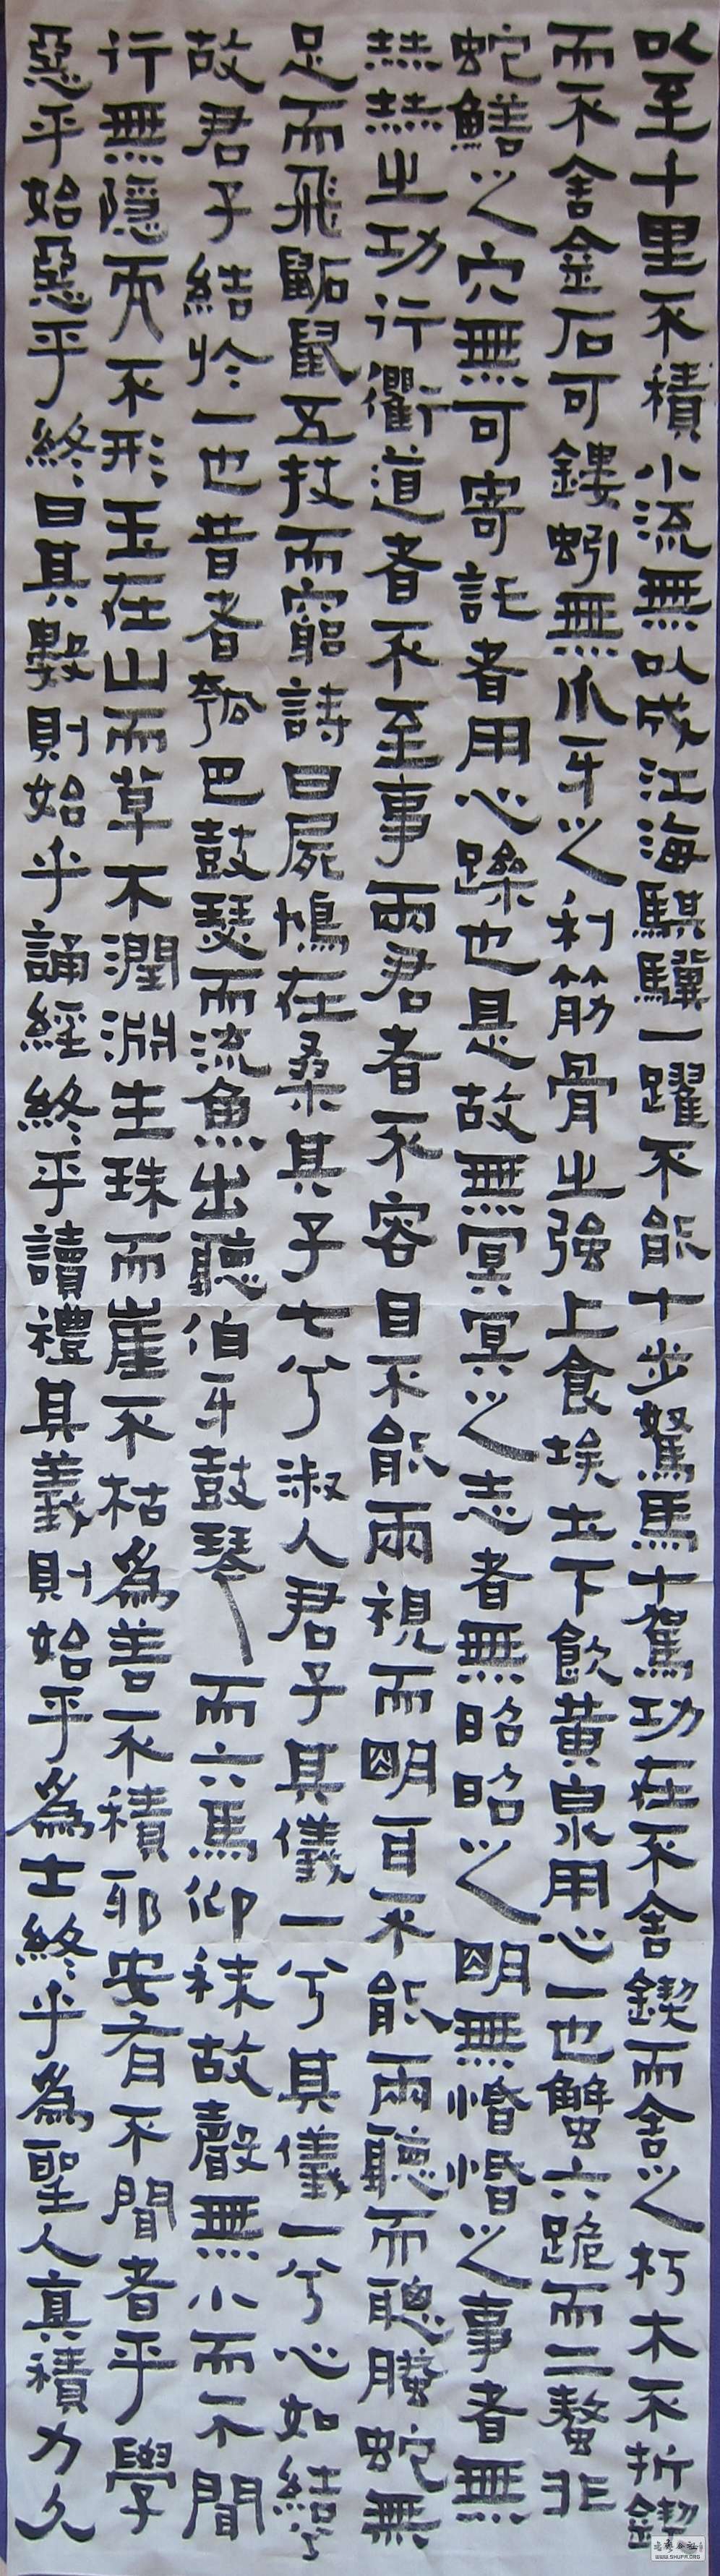 以至十里不積小流無以成江海騏驥一躍不能十步駑馬十駕功在不舍鍥而舍之朽木不折鍥
而不舍金石可鏤蚓無爪牙之利筋骨之強上食埃土下飲黃泉用心一也蟹六跪而二螯非
蛇鱔之穴無可寄託者用心躁也是故無冥冥之志者無昭昭之明無惛惛之事者無
赫赫之功行衢道者不至事兩君者不容目不能兩視而明耳不能兩聽而聰螣蛇無
足而飛鼫鼠五技而窮詩曰屍鳩在桑其子七兮淑人君子其儀一兮其儀一兮心如結兮
故君子結於一也昔者瓠巴鼓瑟而流魚出聽伯牙鼓琴而六馬仰秣故聲無小而不聞
行無隱而不形玉在山而草木潤淵生珠而崖不枯為善不積耶安有不聞者乎學
惡乎始惡乎終曰其數則始乎誦經終乎讀禮其義則始乎為士終乎為聖人真積力久
WWW.SHUFA.ORG